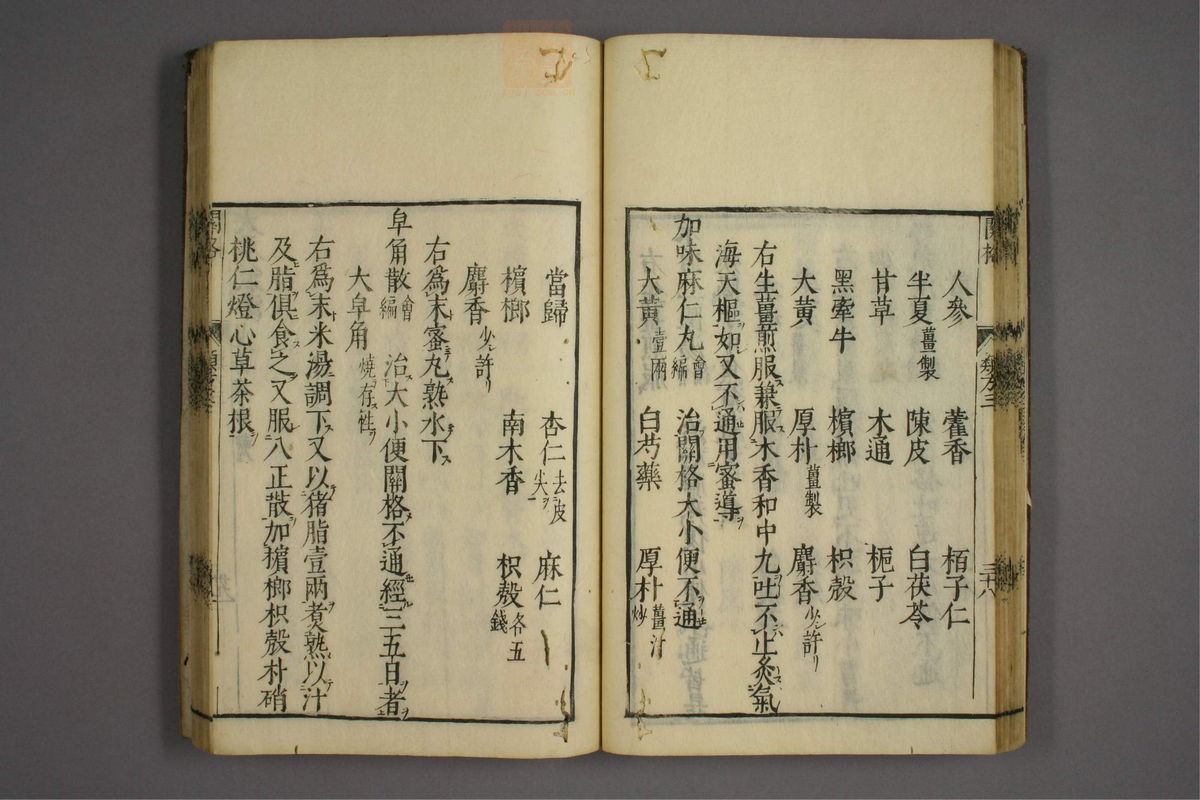 人參 藿香 栢子仁
半夏薑製 陳皮 白茯苓
甘草 木通 梔子
黑牽牛 檳榔 枳殼
大黃 厚朴薑製 麝香少シ許リ
右生薑煎服兼服木香和中丸吐不止灸氣
海天樞如又不通用蜜導
加味麻仁丸會編 治關格大小便不通
大黃壹兩 白芍藥 厚朴薑汁炒
當歸 杏仁去皮尖 麻仁
檳榔 南木香 枳殼各五錢
麝香少シ許リ
右爲末蜜丸熟水下
皁角散會編 治大小便關格不通經三五日者
大皁角燒存性
右爲末米湯調下又以猪脂壹兩煑熟以汁
及脂俱食之又服八正散加檳榔枳殼朴硝
桃仁燈心草茶根
關格